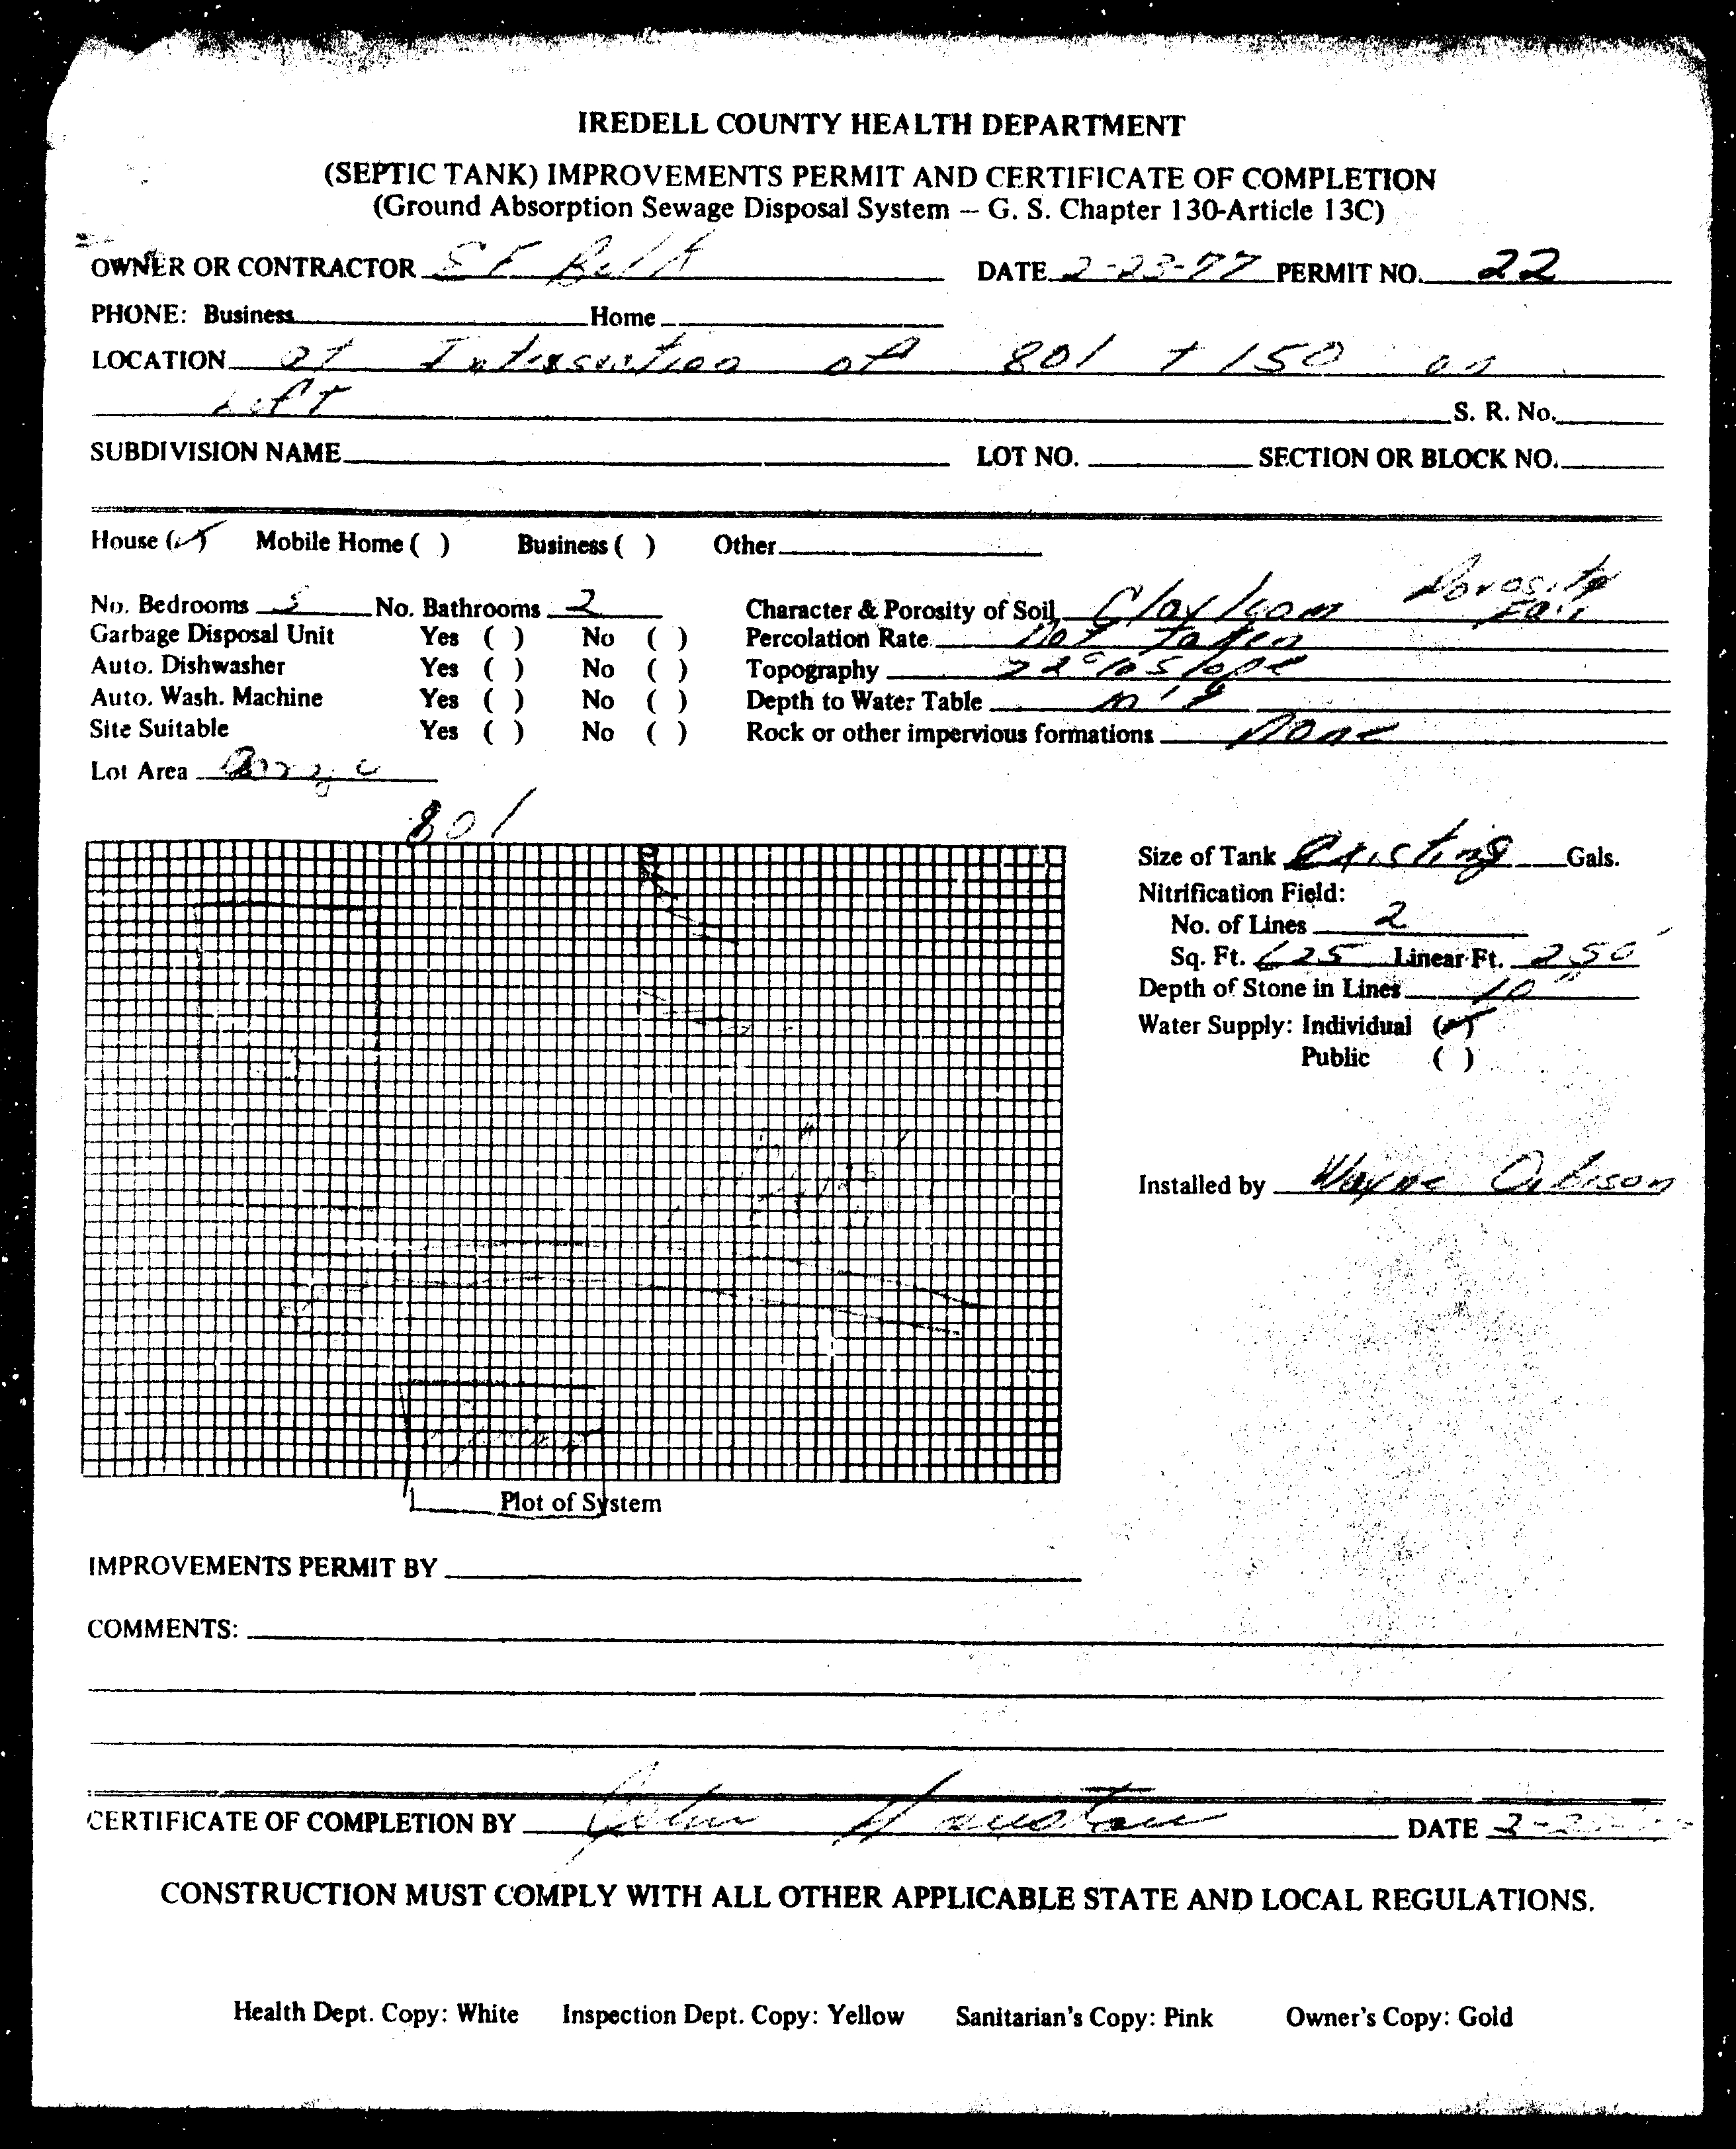 IREDELL COUNTY HEALTH DEPARTMENT
(SEPTIC TANK) IMPROVEMENTS PERMIT AND CERTIFICATE OF COMPLETION
(Ground Absorption Sewage Disposal System — G. S. Chapter 130-Article 13C)
OWNER OR CONTRACTOR Belk DATE 2-23-77 PERMIT NO. 22
PHONE: Business Home
LOCATION at Intersection of 801 + 150 on
Left S. R. No.
SUBDIVISION NAME LOT NO. SECTION OR BLOCK NO.
House (✓) Mobile Home ( ) Business ( ) Other
No. Bedrooms No. Bathrooms 2 Character & Porosity of Soil Clay loam Porosity Fair
Garbage Disposal Unit Yes ( ) No ( ) Percolation Rate Not Taken
Auto. Dishwasher Yes ( ) No ( ) Topography Slope
Auto. Wash. Machine Yes ( ) No ( ) Depth to Water Table
Site Suitable Yes ( ) No ( ) Rock or other impervious formations None
Lot Area
801
Size of Tank existing Gals.
Nitrification Field:
No. of Lines 2
Sq. Ft. 625 Linear Ft. 250'
Depth of Stone in Lines 10"
Water Supply: Individual (✓)
Public ( )
Installed by Wayne
Plot of System
IMPROVEMENTS PERMIT BY
COMMENTS:
CERTIFICATE OF COMPLETION BY John Houston DATE
CONSTRUCTION MUST COMPLY WITH ALL OTHER APPLICABLE STATE AND LOCAL REGULATIONS.
Health Dept. Copy: White Inspection Dept. Copy: Yellow Sanitarian's Copy: Pink Owner's Copy: Gold